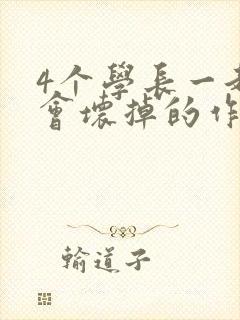 4个學長一
會壞掉的作
輸道子